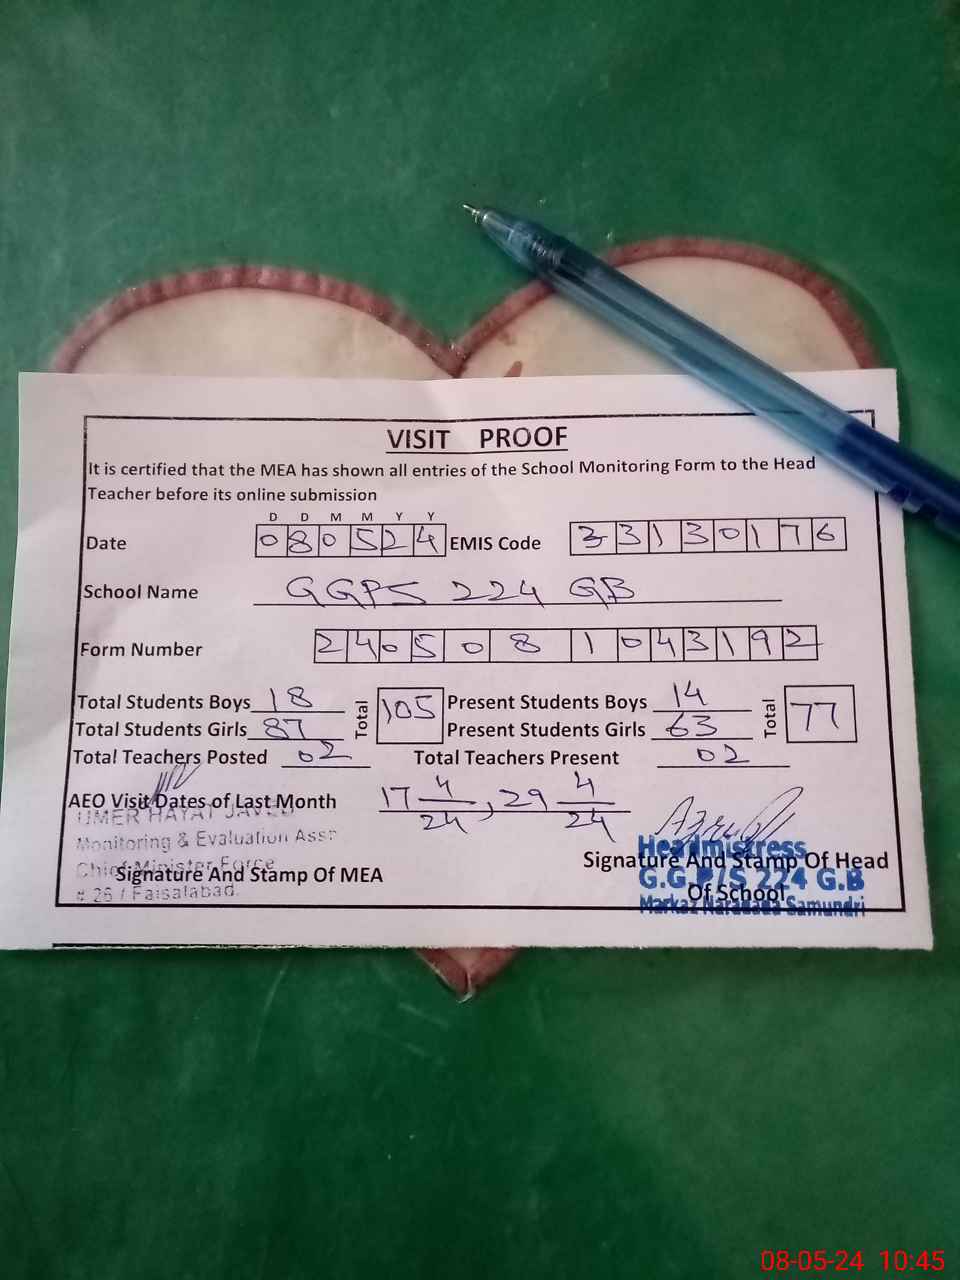 VISIT PROOF
It is certified that the MEA has shown all entries of the School Monitoring Form to the Head
Teacher before its online submission
D D M M Y Y
Date 080524 EMIS Code 33130176
School Name GGPS 224 GB
Form Number 2405081043192
Total Students Boys 18 Total 105 Present Students Boys 14 Total 77
Total Students Girls 87 Present Students Girls 63
Total Teachers Posted 02 Total Teachers Present 02
AEO Visit Dates of Last Month 17 4/24, 29 4/24
UMER HAYAT JAVED
Monitoring & Evaluation Asst
Chief Minister Force
# 26 / Faisalabad.
Signature And Stamp Of MEA
Headmistress
Signature And Stamp Of Head
G.G.P/S 224 G.B
Of School
Markaz Samundri
08-05-24 10:45